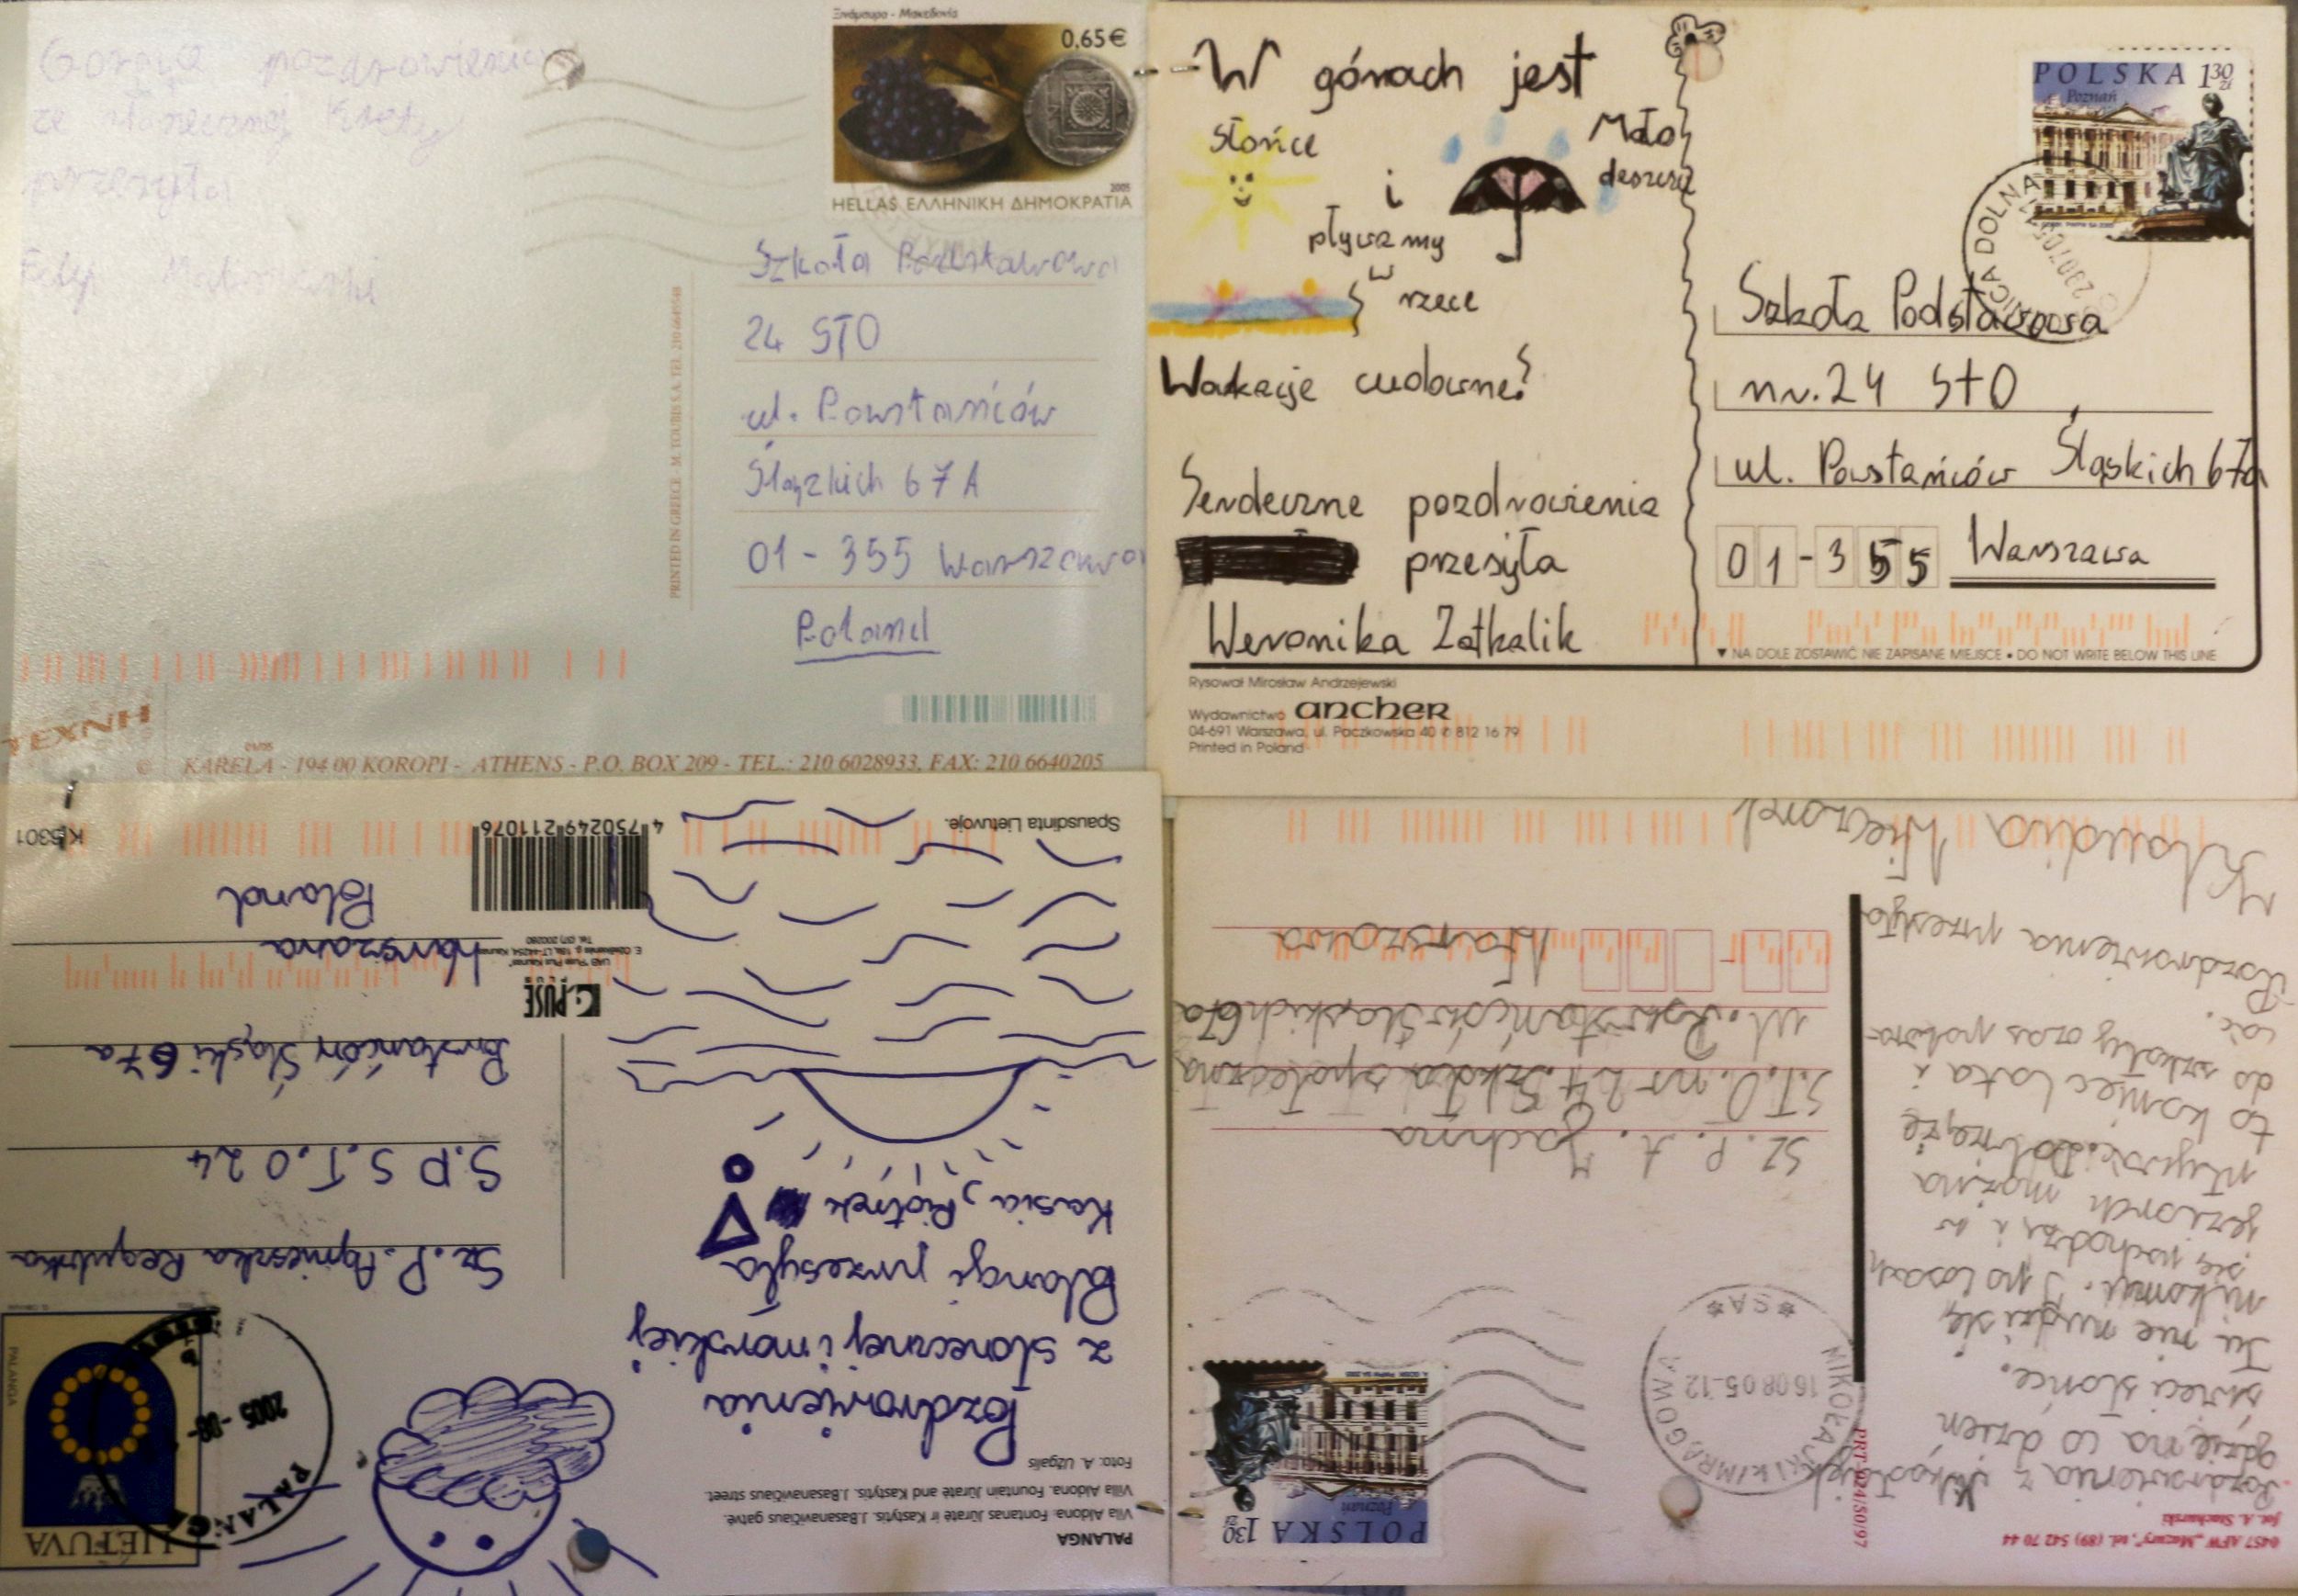 Gorące pozdrowienia
ze słonecznej Krety
przesyła
Ξινόμαυρο - Μακεδονία
0,65€
2005
HELLAS ΕΛΛΗΝΙΚΗ ΔΗΜΟΚΡΑΤΙΑ
Szkoła Podstawowa
24 STO
ul. Powstańców
Śląskich 67A
01-355 Warszawa
Poland
PRINTED IN GREECE - M. TOUBIS S.A. TEL. 210 6649548
ΤΕΧΝΗ
© KARELA - 194 00 KOROPI - ATHENS - P.O. BOX 209 - TEL.: 210 6028933, FAX: 210 6640205
W górach jest
słońce
i
Mało
deszczu
pływamy
w
rzece
Wakacje cudowne!
Serdeczne pozdrowienia
przesyła
Weronika Zatkalik
POLSKA 1 30 zł
Poznań
DOLNA
Szkoła Podstawowa
nr. 24 STO
ul. Powstańców Śląskich 67a
01-355 Warszawa
▼ NA DOLE ZOSTAWIĆ NIE ZAPISANE MIEJSCE • DO NOT WRITE BELOW THIS LINE
Rysował Mirosław Andrzejewski
Wydawnictwo ancher
04-691 Warszawa, ul. Paczkowska 40 ✆ 812 16 79
Printed in Poland
PALANGA
Vila Aldona. Fontanas Jūratė ir Kastytis. J.Basanavičiaus gatvė.
Villa Aldona. Fountain Jūratė and Kastytis. J.Basanavičiaus street.
Foto: A. Užgalis
Pozdrowienia
z słonecznej i morskiej
Palangi przesyła
Kasia, Piotrek
i
Spausdinta Lietuvoje.
LIETUVA
PALANGA
PALANGA
2005 -08-
Sz. P. Agnieszka Regulska
S.P S.T.O 24
Powstańców Śląski 67a
Warszawa
Poland
G.PUSE
PLUS
UAB "Puse Plus Kaunas"
4 750249 211076
K 5301
0457 AFW „Mazury”, tel. (89) 542 70 44
fot. A. Stachurski
PRT-924/S0/97
Pozdrowienia z Mikołajek
gdzie na co dzień
świeci słońce.
Tu nie nudzi się
nikomu. I po lasach
się pochodzi i w
jeziorach można
pływać. Dobrze, że
to koniec lata i
do szkoły czas powra-
cać.
Pozdrowienia przesyła
Klaudia Wieczorek
POLSKA 1 30 zł
Poznań
MIKOŁAJKI K/MRĄGOWA
16 08 05-12
*SA*
Sz. P. A. Jachma
S.T.O. nr 24 Szkoła społeczna
ul. Powstańców Śląskich 67a
Warszawa